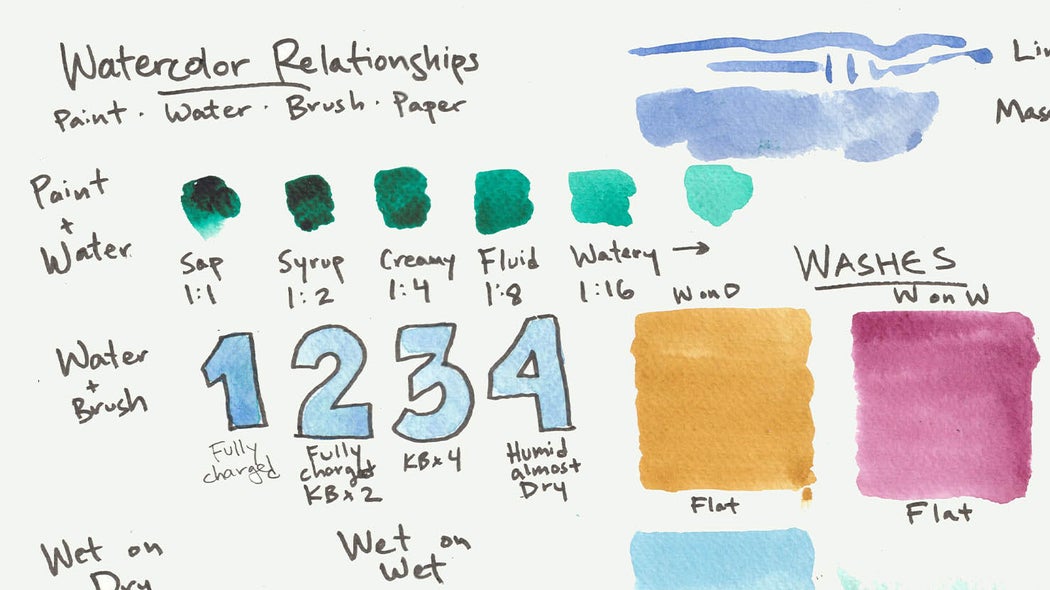 Watercolor Relationships
Paint · Water · Brush · Paper
Lin
Mas
Paint
+
Water
Sap
1:1
Syrup
1:2
Creamy
1:4
Fluid
1:8
Watery →
1:16
WASHES
W on D
W on W
Water
+
Brush
1 2 3 4
Fully
charged
Fully
charged
KB x 2
KB x 4
Humid
almost
Dry
Flat
Flat
Wet on
Dry
Wet on
Wet